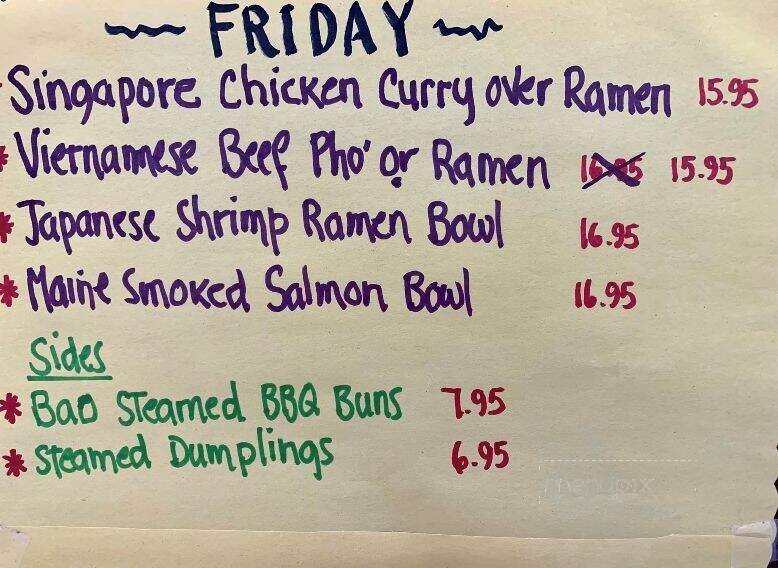 ~ FRIDAY ~
Singapore Chicken Curry over Ramen 15.95
* Vietnamese Beef Pho' or Ramen 16.95 15.95
* Japanese Shrimp Ramen Bowl 16.95
* Maine Smoked Salmon Bowl 16.95
Sides
* Bao Steamed BBQ Buns 7.95
* Steamed Dumplings 6.95
menupix